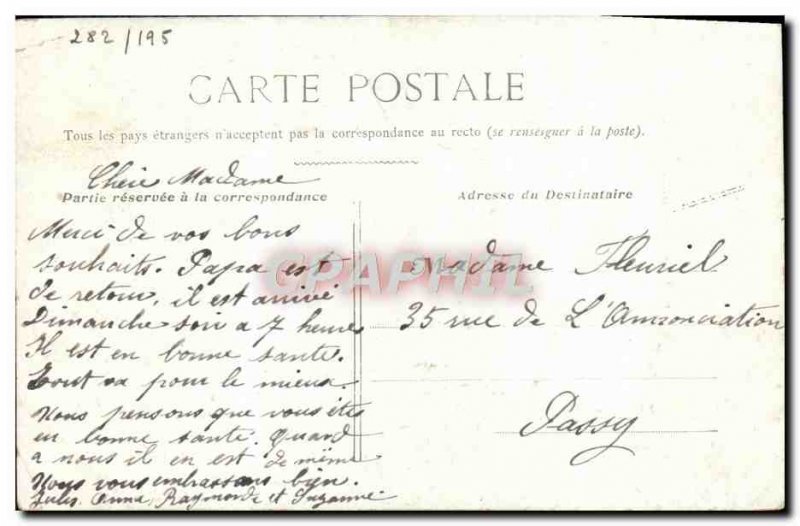 282/195
CARTE POSTALE
Tous les pays étrangers n'acceptent pas la correspondance au recto (se renseigner à la poste).
Chère Madame
Partie réservée à la correspondance
Merci de vos bons
souhaits. Papa est
de retour, il est arrivé
Dimanche soir a 7 heure
Il est en bonne sante.
Tout va pour le mieux.
Nous pensons que vous êtes
en bonne santé. Quand
a nous il en est de même
Nous vous embrassons bien.
Jules, Anna, Raymonde et Suzanne
Adresse du Destinataire
Madame Fleuriel
35 rue de L'Annonciation
Passy
CPAPHIL